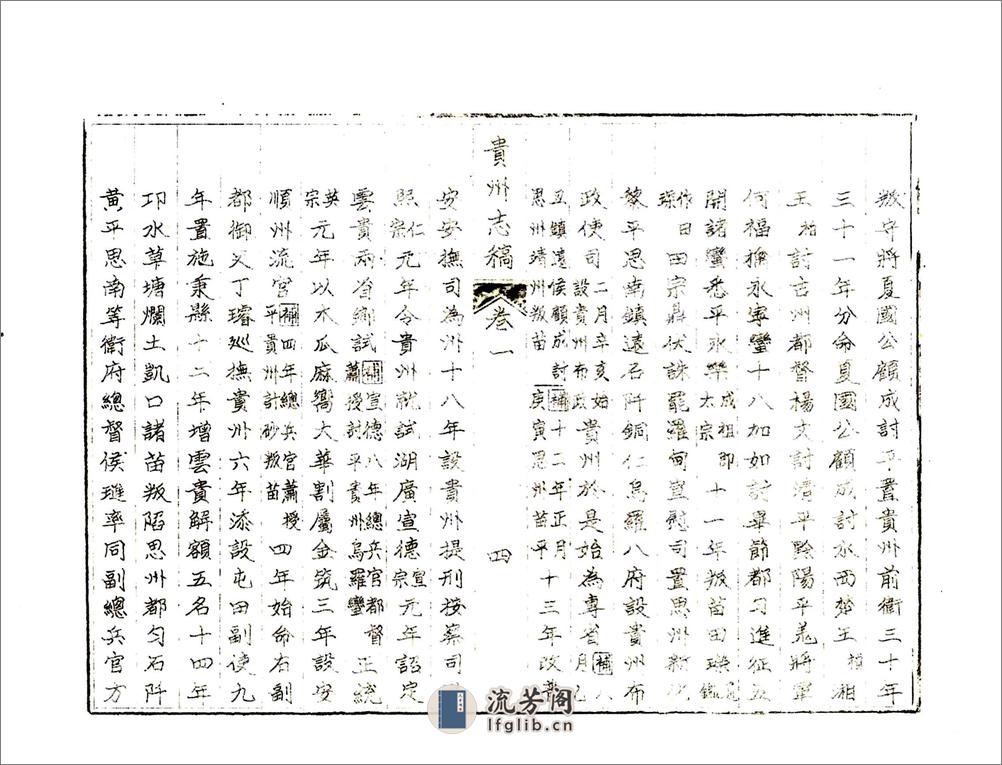 叛守將夏國公顧成討平置貴州前衛三十年
三十一年分命夏國公顧成討水西楚王楨湘
王柏討古州都督楊文討清平黔陽平羌將軍
何福擒永寧蠻十八加如討畢節都勻進征五
開諸蠻悉平永樂成祖即太宗十一年叛苗田琛
作田宗鼎伏誅罷羅甸宣慰司置思州新
黎平思南鎮遠石阡銅仁烏羅八府設貴州布
政使司二月辛亥始設貴州布政貴州於是始為專省補八月乙
丑鎮遠侯顧成討思州靖州叛苗補十二年正月庚寅思州苗平十三年改普
貴州志稿 卷一 四
安安撫司為州十八年設貴州提刑按察司
熙仁宗元年令貴州就試湖廣宣德宣宗元年詔定
雲貴兩省鄉試補宣德八年總兵官都督蕭授討平貴州烏羅蠻正統
英宗元年以木瓜麻嚮大華割屬金筑三年設安
順州流官補四年總兵官蕭授平貴州計砂叛苗四年始命右副
都御史丁璿巡撫貴州六年添設屯田副使九
年置施秉縣十二年增雲貴解額五名十四年
邛水草塘爛土凱口諸苗叛陷思州都勻石阡
黃平思南等衛府總督侯璡率同副總兵官方
流芳阁
lfglib.cn